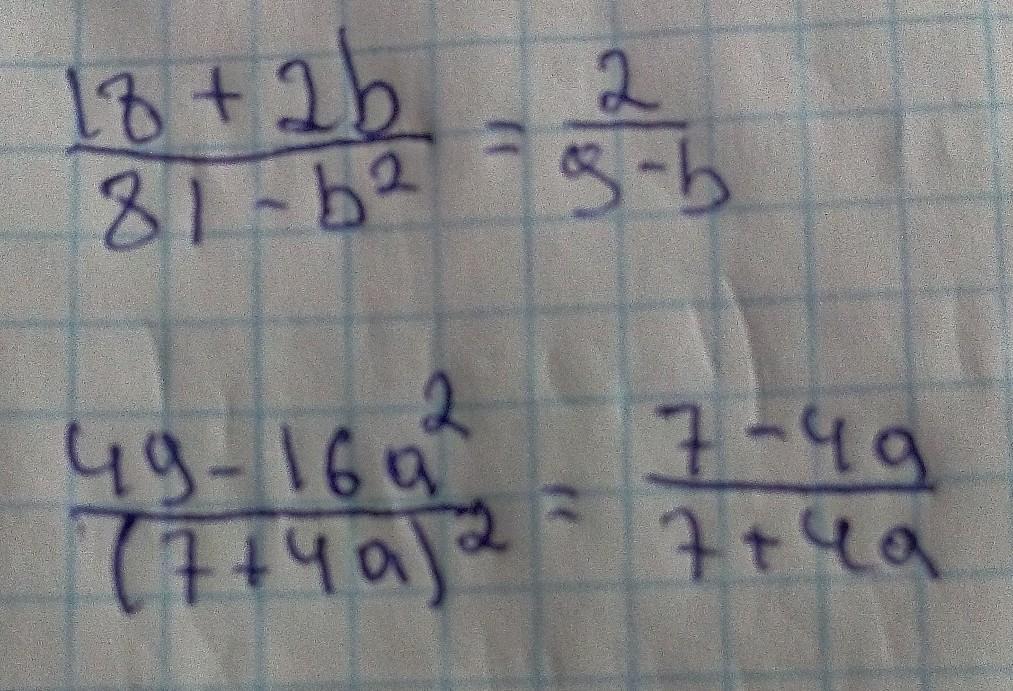 (18 + 2b)/(81 - b²) = 2/(9 - b)
(49 - 16a²)/(7 + 4a)² = (7 - 4a)/(7 + 4a)